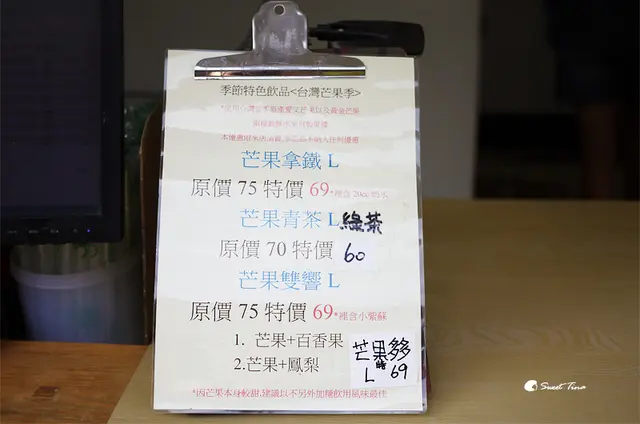 季節特色飲品<台灣芒果季>
芒果拿鐵 L
原價 75 特價 69
芒果青茶 L 綠茶
原價 70 特價 60
芒果雙響 L
原價 75 特價 69 *裡含小紫蘇
1. 芒果+百香果
2.芒果+鳳梨
芒果多多
L 69
*因芒果本身較甜,建議以不另外加糖飲用風味最佳
Sweet Tina